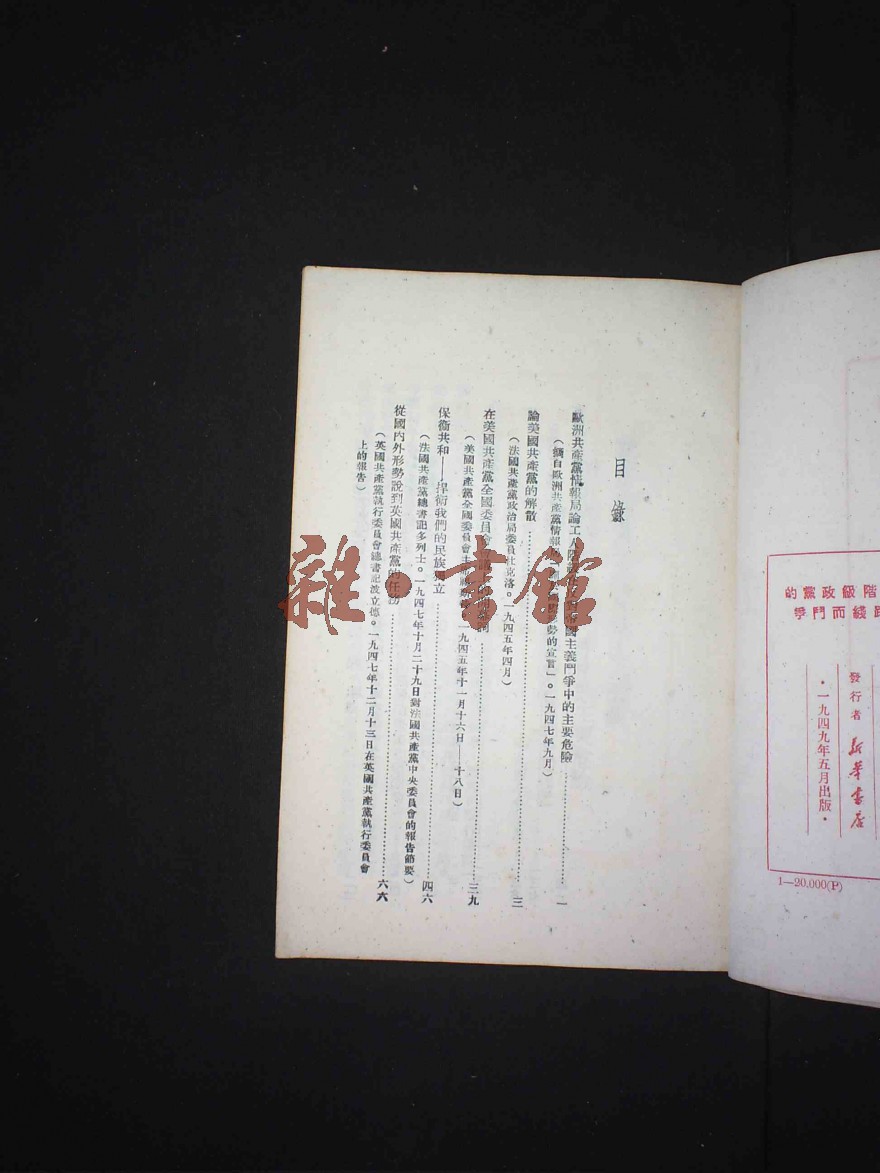 目錄
歐洲共產黨情報局論工人階級在反對帝國主義鬥爭中的主要危險……一
(摘自歐洲共產黨情報局國際形勢的宣言」。一九四七年九月)
論美國共產黨的解散……三
(法國共產黨政治局委員杜克洛。一九四五年四月)
在美國共產黨全國委員會……三九
(美國共產黨全國委員會主席。一九四五年十一月十六日——十八日)
保衛共和——捍衛我們的民族獨立……四六
(法國共產黨總書記多列士。一九四七年十月二十九日對法國共產黨中央委員會的報告節要)
從國內外形勢說到英國共產黨的任務……六六
(英國共產黨執行委員會總書記波立德。一九四七年十二月十三日在英國共產黨執行委員會
上的報告)
階級政黨的
路綫而鬥爭
發行者 新華書店
·一九四九年五月出版·
1—20,000(P)
雜·書館